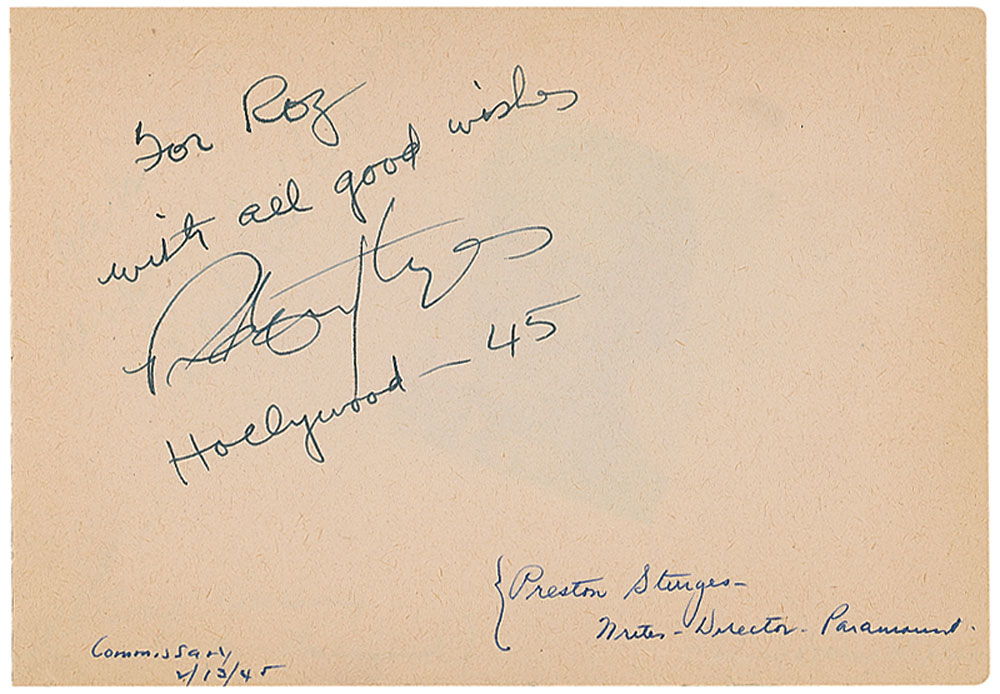 For Roz
with all good wishes
Preston Sturges
Hollywood – 45
{ Preston Sturges –
Writer – Director – Paramount.
Commissary
2/13/45